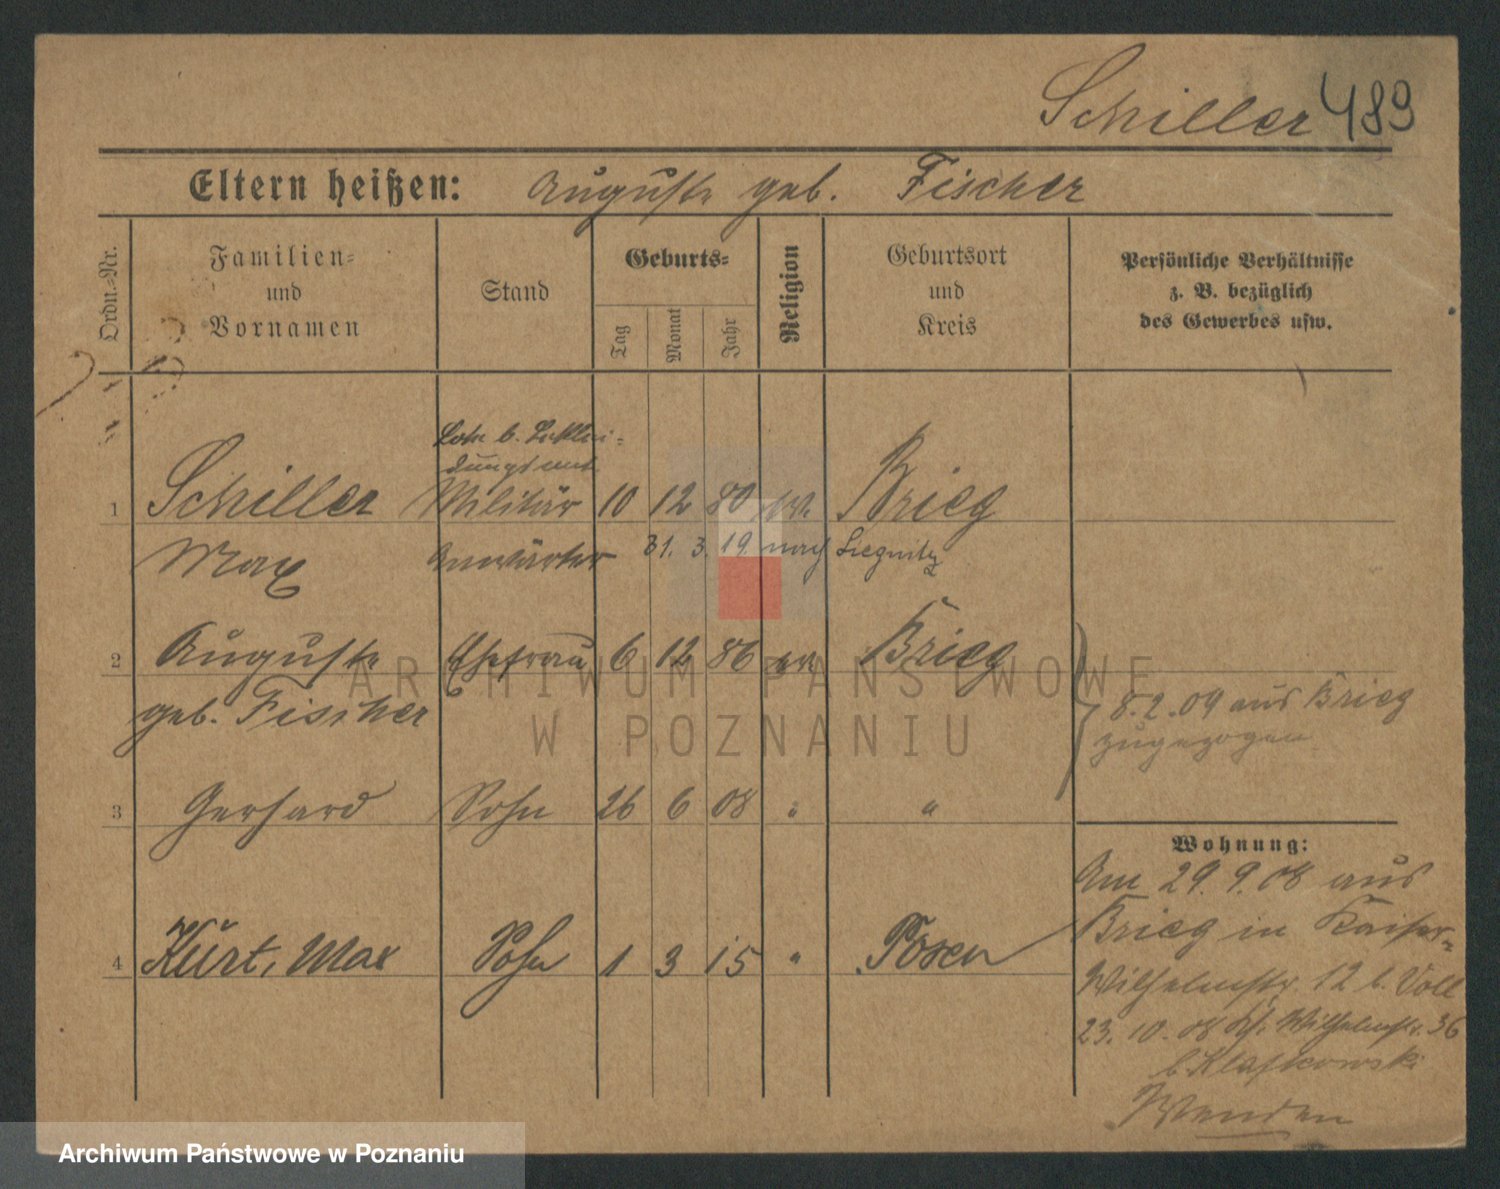 Schiller 489
Eltern heißen: Auguste geb. Fischer
Ordn.-Nr.
Familien-
und
Vornamen
Stand
Geburts-
Tag
Monat
Jahr
Religion
Geburtsort
und
Kreis
Persönliche Verhältnisse
z. B. bezüglich
des Gewerbes usw.
b. Beklei-
dungsamt
1 Schiller Militär 10 12 80 Brieg
Max Anwärter 31. 3. 19. nach Liegnitz
2 Auguste Ehefrau 6 12 86 Brieg
geb. Fischer
8.2.09 aus Brieg
zugezogen
3 Gerhard Sohn 26 6 08 " "
Wohnung:
Am 29. 9. 08 aus
Brieg in Kaiser-
4 Kurt, Max Sohn 1 3 15 " Posen
Wilhelmstr. 12 b. Voll
23. 10. 08 Wilhelmstr. 36
b.
Wenden
ARCHIWUM PAŃSTWOWE
W POZNANIU
Archiwum Państwowe w Poznaniu